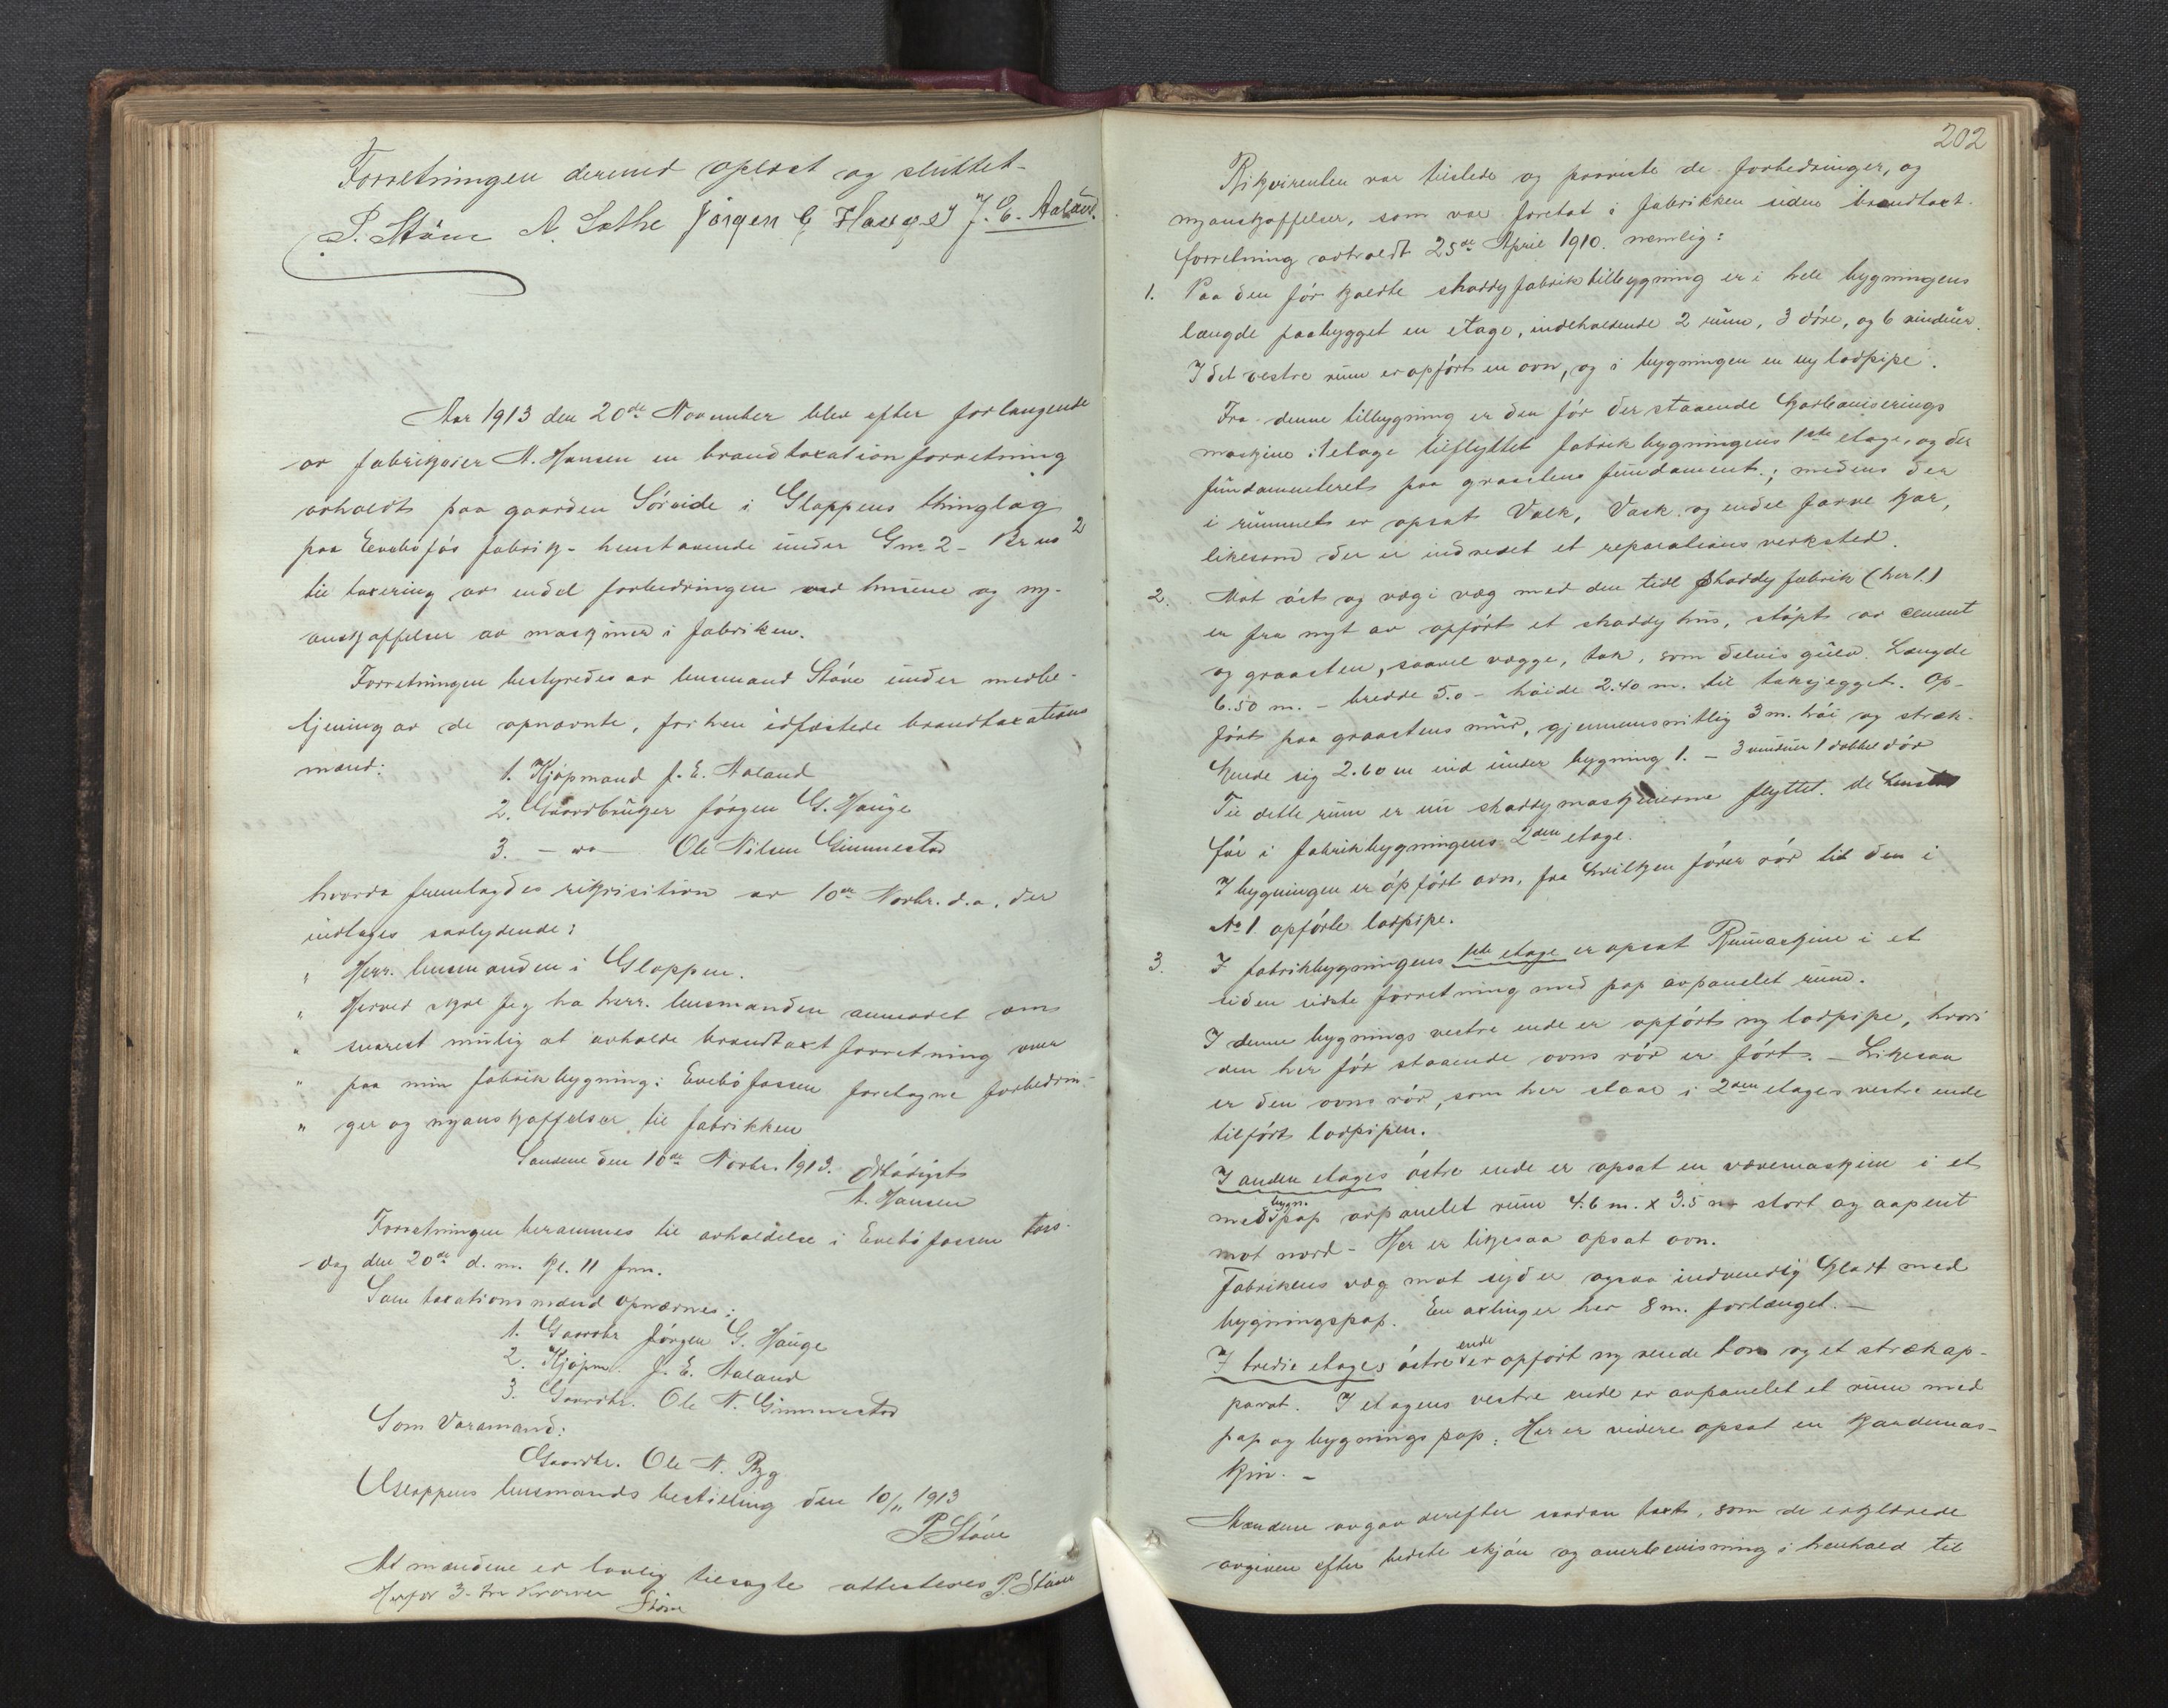 Forretningen dermed oplæst og sluttet.
P. Støve A. Sathe Jørgen G Hauge J. E. Aaland.
Aar 1913 den 20de November blev efter forlangende
av fabrikeier A. Hansen en brandtaxationsforretning
avholdt paa gaarden Søreide i Gloppens thinglag
paa Evebøfos fabrik - henstaaende under Gno 2 - Br no 2
til taxering av endel forbedringer ved husene og ny-
anskaffelser av maskiner i fabriken.
Forretningen bestyredes av lensmand Støve under medbe-
tjening av de opnævnte, forhen edfæstede brandtaxations
mænd:
1. Kjøpmand J. E. Aaland
2. Gaardbruger Jørgen G. Hauge
3. — do — Ole Nilsen Gimmestad
hvorda fremlagdes rekvisition av 10de Novbr. d.a. der
indtages saalydende:
" Herr. lensmanden i Gloppen.
" Herved skal jeg ha herr. lensmanden anmodet om
" snarest mulig at avholde brandtaxtforretning over
" paa min fabrikbygning i Evebøfossen foretagne forbedrin-
" ger og nyanskaffelser til fabrikken
Sandene den 10de Novbr. 1913. Ærbødigst
A. Hansen
Forretningen berammes til avholdelse i Evebøfossen tors-
dag den 20de d. m. kl. 11 fm.
Som taxationsmænd opnævnes:
1. Gaardbr Jørgen G. Hauge
2. Kjøpm. J. E. Aaland
3. Gaardbr. Ole N. Gimmestad
Som Varamand:
Gaardbr. Ole N. Ryg
Gloppens lensmandsbestilling den 10/11 1913
P Støve
At mændene er lovlig tilsagte attesteres P. Støve
Herfor 3. tre Kroner Støve
202
Rekvirenten var tilstede og paaviste de forbedringer, og
nyanskaffelser, som var foretat i fabrikken siden brandtaxt-
forretning avholdt 25de April 1910. nemlig:
1. Paa den før kaldte shoddyfabriktilbygning er i hele bygningens
længde paabygget en etage, indeholdende 2 rum, 3 døre, og 6 vinduer.
I det vestre rum er opført en ovn, og i bygningen en ny lodpipe.
Fra denne tilbygning er den før der staaende Karboniserings
maskine i 1 etage tilflyttet fabrikbygningens 1ste etage, og der
fundamenteret paa graastens fundament; medens der
i rummet er opsat Valk, Vask og endel farvekar,
likesom der er indredet et reparationsverksted.
2. Mot øst og væg i væg med den tidl shoddyfabrik (her 1.)
er fra nyt av opført et shoddyhus, støpt av cement
og graasten, saavel vægge, tak, som delvis gulv. Længde
6.50 m. - bredde 5.0 - høide 2.40 m. til takskjegget. Op-
ført paa graastens mur, gjennemsnitlig 3 m. høi og stræk-
kende sig 2.60 m ind under bygning 1. - 3 vinduer 1 dobbel dør
Til dette rum er nu shoddymaskinerne flyttet. de
før i fabrikbygningens 2den etage.
I bygningen er opført ovn, fra hvilken fører rør til den i
No 1 opførte lodpipe.
3. I fabrikbygningens 1ste etage er opsat Rumaskine i et
siden sidste forretning med pap avpanelet rum.
I denne bygnings vestre ende er opført ny lodpipe, hvori
den her før staaende ovns rør er ført. - Likesaa
er den ovns rør, som her staar i 2den etages vestre ende
tilført lodpipen.
I anden etages østre ende er opsat en vævemaskine i et
med bygn. pap avpanelet rum 4.6 m. x 3.5 m stort og aapent
mot nord - Her er likesaa opsat ovn.
Fabrikens væg mot syd er ogsaa indvendig klædt med
bygningspap. En axling er her 8 m. forlænget. -
I tredie etages østre ende er opført ny og et strækap-
parat. I etagens vestre ende er avpanelet et rum med
pap og bygningspap: Her er videre opsat en kardemas-
kin. -
Mændene avgav derefter saadan taxt, som de erklærede
avgiven efter bedste skjøn og overbevisning i henhold til